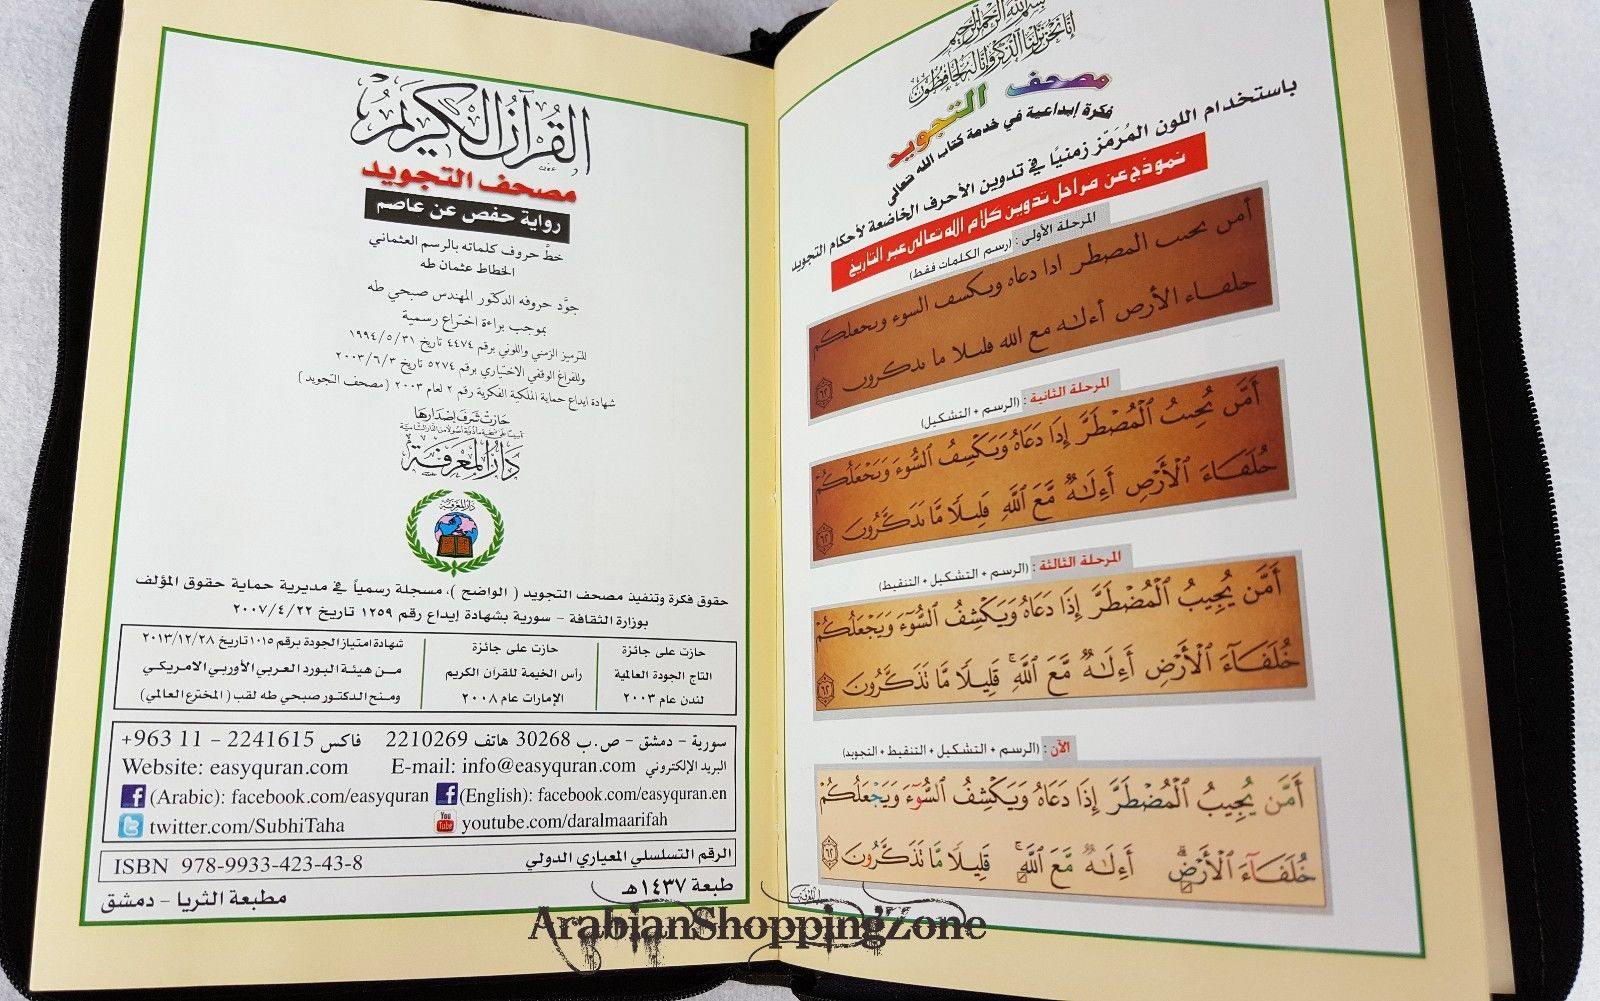 بسم الله الرحمن الرحيم
إنا نحن نزلنا الذكر وإنا له لحافظون
مصحف التجويد
فكرة إبداعية في خدمة كتاب الله تعالى
باستخدام اللون المُرَمّز زمنيًا في تدوين الأحرف الخاضعة لأحكام التجويد
نموذج عن مراحل تدوين كلام الله تعالى عبر التاريخ
المرحلة الأولى : (رسم الكلمات فقط)
المرحلة الثانية : (الرسم + التشكيل)
المرحلة الثالثة : (الرسم + التشكيل + التنقيط)
أَمَّن يُجِيبُ ٱلْمُضْطَرَّ إِذَا دَعَاهُ وَيَكْشِفُ ٱلسُّوٓءَ وَيَجْعَلُكُمْ
خُلَفَآءَ ٱلْأَرْضِ أَءِلَٰهٌ مَّعَ ٱللَّهِ قَلِيلًا مَّا تَذَكَّرُونَ ٦٢
الآن : (الرسم + التشكيل + التنقيط + التجويد)
أَمَّن يُجِيبُ ٱلْمُضْطَرَّ إِذَا دَعَاهُ وَيَكْشِفُ ٱلسُّوٓءَ وَيَجْعَلُكُمْ
خُلَفَآءَ ٱلْأَرْضِ أَءِلَٰهٌ مَّعَ ٱللَّهِ قَلِيلًا مَّا تَذَكَّرُونَ ٦٢
القرآن الكريم
مصحف التجويد
رواية حفص عن عاصم
خطَّ حروف كلماته بالرسم العثماني
الخطاط عثمان طه
جوَّد حروفه الدكتور المهندس صبحي طه
بموجب براءة اختراع رسمية
للترميز الزمني واللوني برقم ٤٤٧٤ تاريخ ١٩٩٤/٥/٣١
وللفراغ الوقفي الاختياري برقم ٥٢٧٤ تاريخ ٢٠٠٣/٦/٣
شهادة إيداع حماية الملكية الفكرية رقم ٢ لعام ٢٠٠٣ (مصحف التجويد)
حازت شرف إصدارها
دار المعرفة
دار المعرفة
حقوق فكرة وتنفيذ مصحف التجويد ( الواضح )، مسجلة رسمياً في مديرية حماية حقوق المؤلف
بوزارة الثقافة - سورية بشهادة إيداع رقم ١٢٥٩ تاريخ ٢٠٠٧/٤/٢٢
حازت على جائزة
التاج الجودة العالمية
لندن عام ٢٠٠٣
حازت على جائزة
رأس الخيمة للقرآن الكريم
الإمارات عام ٢٠٠٨
شهادة امتياز الجودة برقم ١٠١٥ تاريخ ٢٠١٣/١٢/٢٨
من هيئة البورد العربي الأوربي الامريكي
ومنح الدكتور صبحي طه لقب (المخترع العالمي)
سورية - دمشق - ص.ب 30268 هاتف 2210269 فاكس 2241615 - 11 963+
البريد الإلكتروني E-mail: info@easyquran.com Website: easyquran.com
(Arabic): facebook.com/easyquran (English): facebook.com/easyquran.en
twitter.com/SubhiTaha You Tube youtube.com/daralmaarifah
الرقم التسلسلي المعياري الدولي ISBN 978-9933-423-43-8
طبعة ١٤٣٧هـ
مطبعة الثريا - دمشق
ArabianShoppingZone